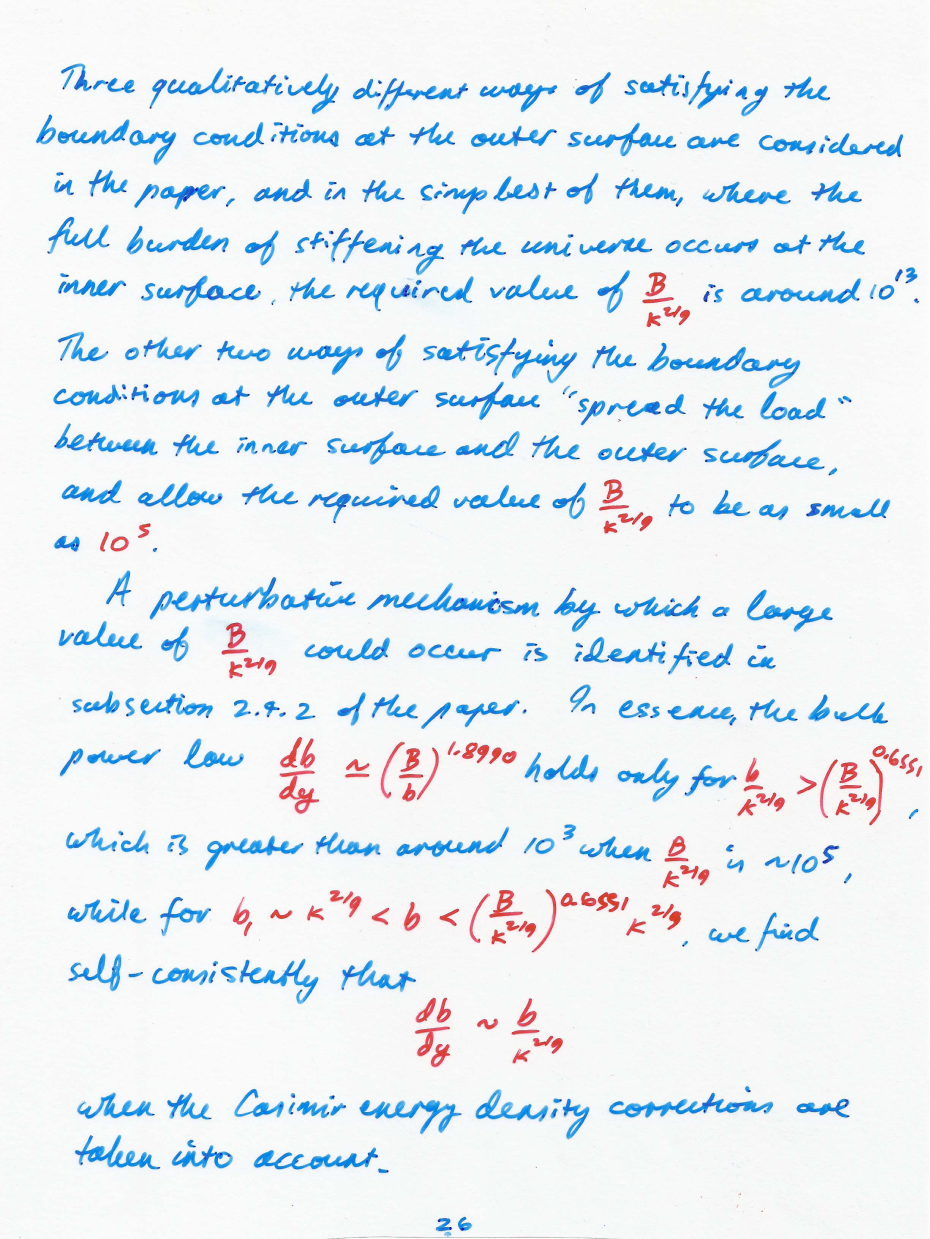 Three qualitatively different ways of satisfying the
boundary conditions at the outer surface are considered
in the paper, and in the simplest of them, where the
full burden of stiffening the universe occurs at the
inner surface, the required value of B/κ^{2/9} is around 10^{13}.
The other two ways of satisfying the boundary
conditions at the outer surface "spread the load"
between the inner surface and the outer surface,
and allow the required value of B/κ^{2/9} to be as small
as 10^5.
A perturbative mechanism by which a large
value of B/κ^{2/9} could occur is identified in
subsection 2.4.2 of the paper. In essence, the bulk
power law db/dy ≃ (B/b)^{1.8990} holds only for b/κ^{2/9} > (B/κ^{2/9})^{0.6551},
which is greater than around 10^3 when B/κ^{2/9} is ~10^5,
while for b₁ ~ κ^{2/9} < b < (B/κ^{2/9})^{0.6551} κ^{2/9}, we find
self-consistently that
db/dy ~ b/κ^{2/9}
when the Casimir energy density corrections are
taken into account.
26